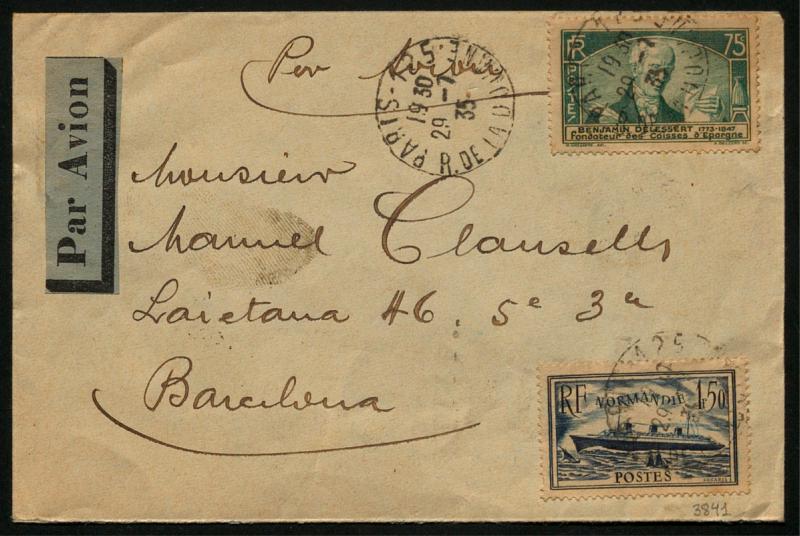 Par Avion
Par Avion
PARIS-25
19 30
29 -7
35
R. DE LA DOUANE
RF
75
BENJAMIN DELESSERT 1773-1847
Fondateur des Caisses d'Epargne
Monsieur
Manuel Clausells
Laietana 46. 5e 3a
Barcelona
RF NORMANDIE 1F50
POSTES
3841